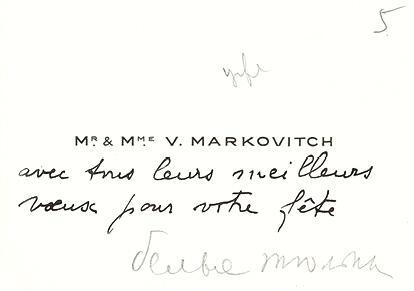 5
MR. & MME. V. MARKOVITCH
avec tous leurs meilleurs
vœux pour votre fête